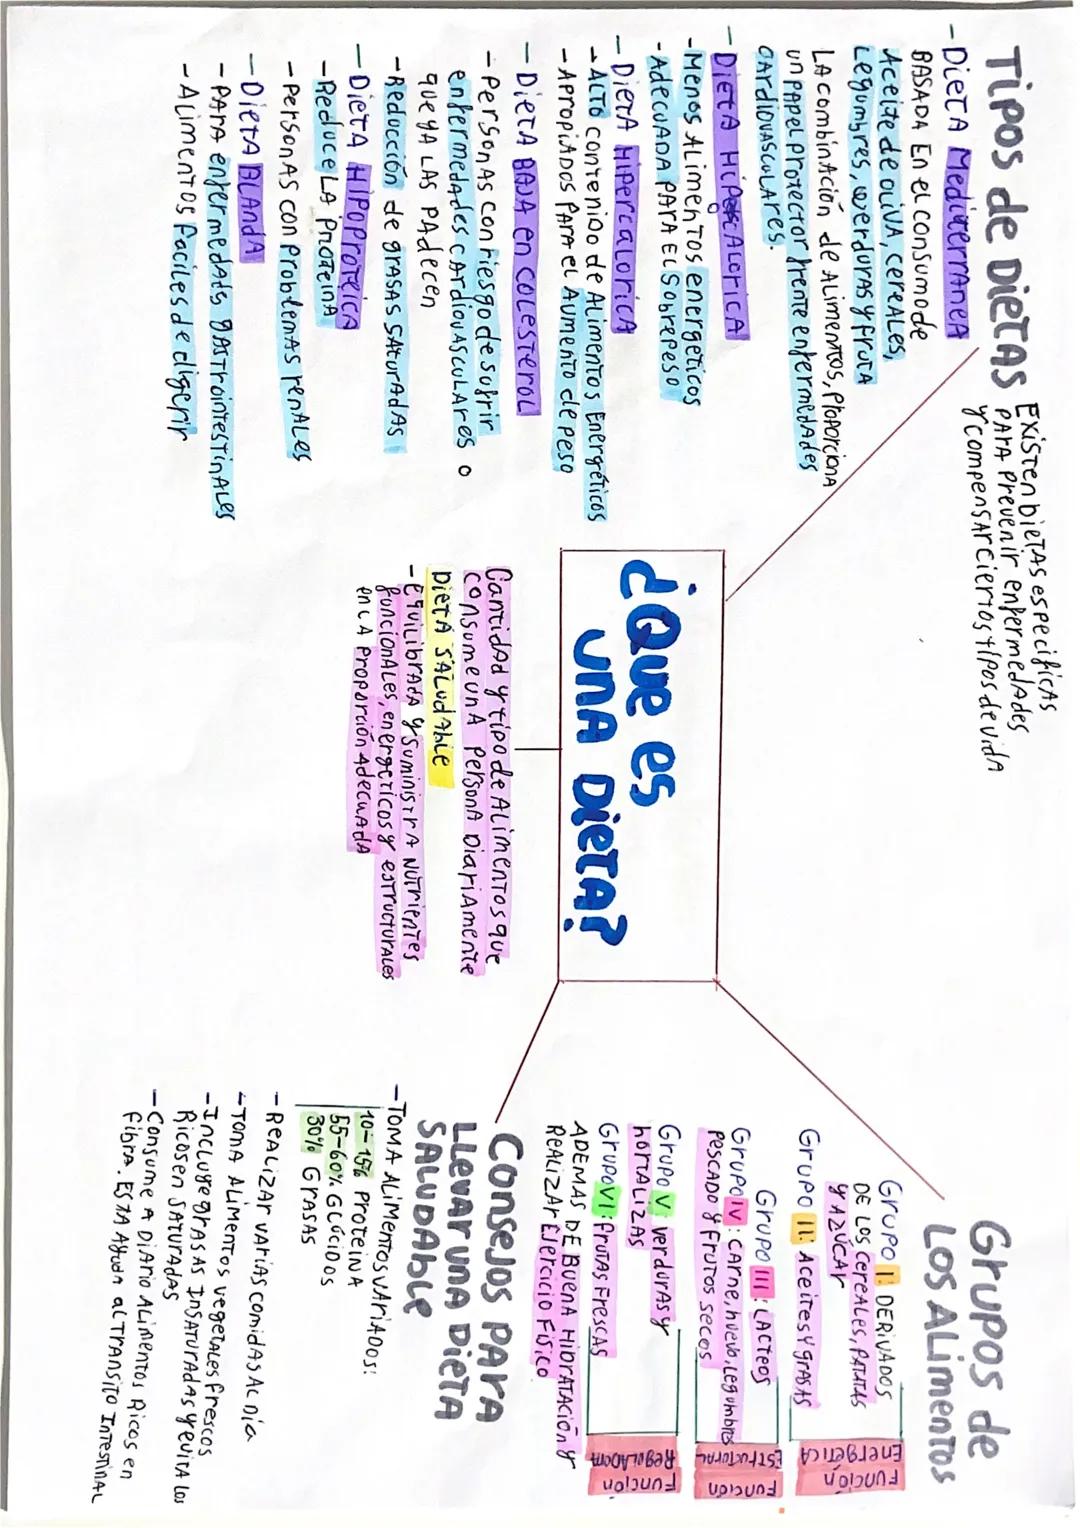 Tipos de Dietas
Existen dietas especificas
para prevenir enfermedades
y compensar ciertos tipos de vida
- Dieta Mediterranea
Basada en el consumo de
Aceite de oliva, cereales,
Legumbres, verduras y fruta
La combinación de alimentos, proporciona
un papel protector frente enfermedades
cardiovasculares.
- Dieta Hipocalorica
- Menos Alimentos energéticos
- Adecuada para el Sobrepeso
- Dieta Hipercalorica
- Alto contenido de Alimentos Energéticos
- Apropiados para el Aumento de peso
- Dieta Baja en colesterol
- Personas con riesgo de sufrir
enfermedades cardiovasculares o
que ya las padecen
- Reducción de grasas saturadas
- Dieta Hipoproteica
- Reduce la Proteina
- Personas con problemas renales
- Dieta Blanda
- Para enfermedads gastrointestinales
- Alimentos faciles de digerir
¿Que es
una Dieta?
Cantidad y tipo de Alimentos que
consume una persona Diariamente
Dieta Saludable
- Equilibrada y suministra nutrientes
funcionales, energeticos y estructurales
en la proporción Adecuada
Grupos de
los Alimentos
Grupo I: Derivados
de los cereales, patatas
y azúcar
Grupo II: Aceites y grasas
Función
Energética
Grupo III: Lacteos
Grupo IV: Carne, huevo, legumbres
pescado y frutos secos
Función
Estructural
Grupo V: verduras y
hortalizas
Grupo VI: frutas frescas
Función
Reguladora
Ademas de buena hibratación y
realizar Ejercicio Físico
Consejos para
llevar una dieta
saludable
- Toma Alimentos variados:
10-15% Proteina
55-60% Glúcidos
30% Grasas
- Realizar varias comidas al día
- Toma Alimentos vegetales frescos
- Incluye grasas Insaturadas y evita los
Ricos en Saturadas
- Consume a Diario Alimentos Ricos en
fibra. Esta Ayuda al transito Intestinal